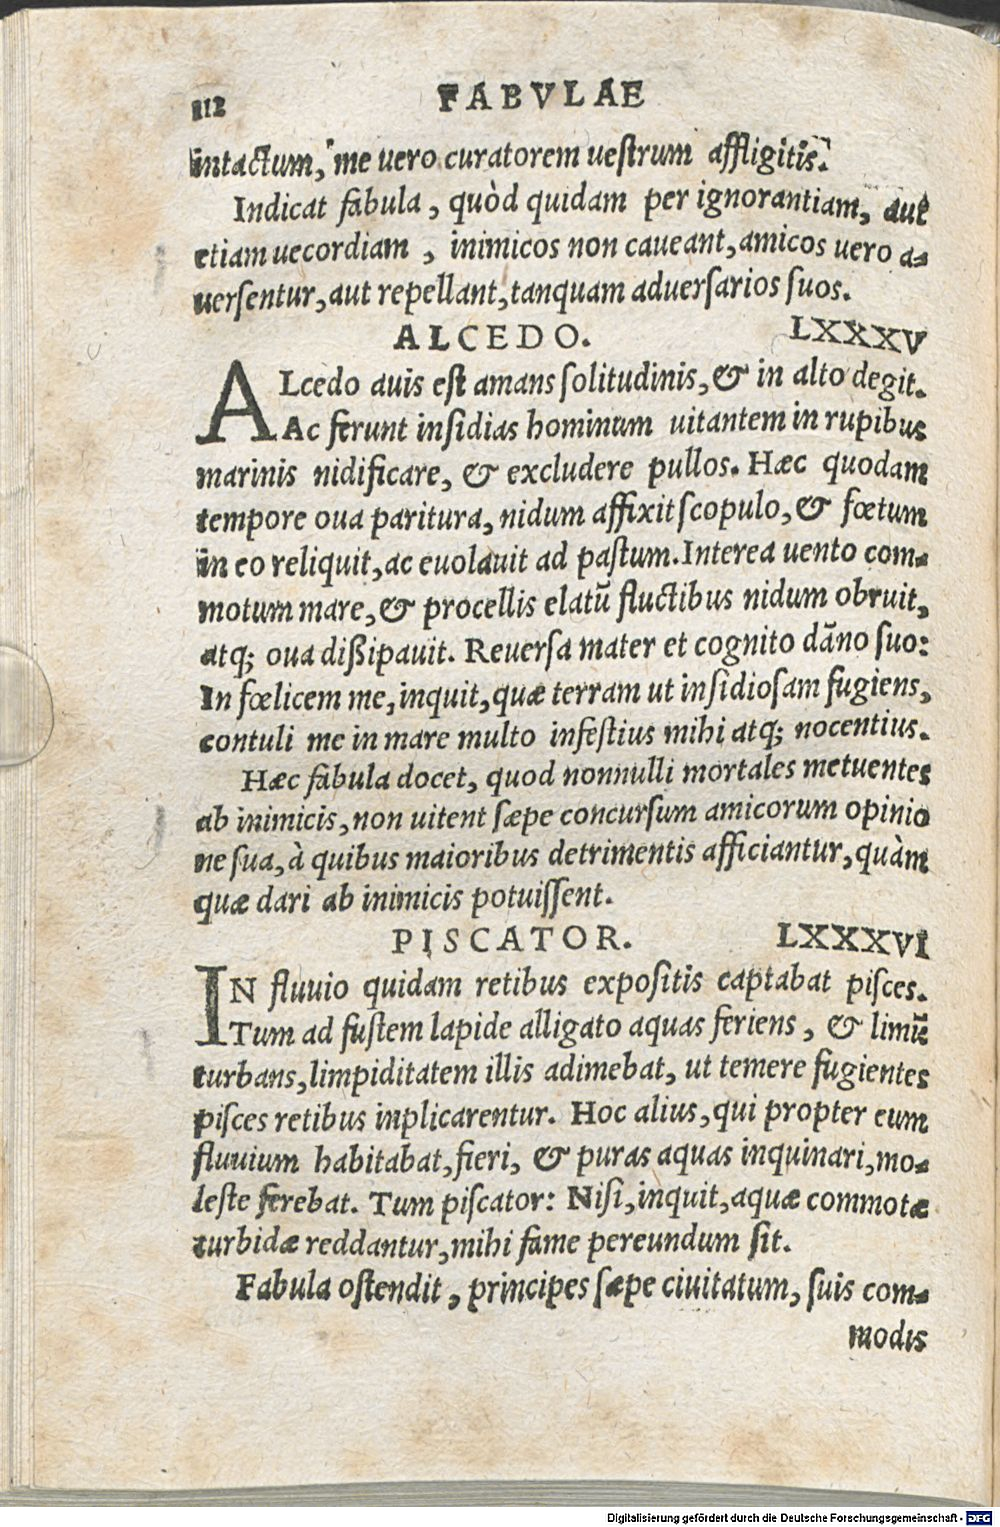 112 FABVLAE
intactum, me uero curatorem uestrum affligitis.
Indicat fabula, quòd quidam per ignorantiam, aut
etiam uecordiam, inimicos non caueant, amicos uero a-
uersentur, aut repellant, tanquam aduersarios suos.
ALCEDO. LXXXV
ALcedo auis est amans solitudinis, & in alto degit.
Ac ferunt insidias hominum uitantem in rupibus
marinis nidificare, & excludere pullos. Hæc quodam
tempore oua paritura, nidum affixit scopulo, & fœtum
in eo reliquit, ac euolauit ad pastum. Interea uento com-
motum mare, & procellis elatū fluctibus nidum obruit,
atq; oua dißipauit. Reuersa mater et cognito dāno suo:
In fœlicem me, inquit, quæ terram ut insidiosam fugiens,
contuli me in mare multo infestius mihi atq; nocentius.
Hæc fabula docet, quod nonnulli mortales metuentes
ab inimicis, non uitent sæpe concursum amicorum opinio
ne sua, à quibus maioribus detrimentis afficiantur, quàm
quæ dari ab inimicis potuissent.
PISCATOR. LXXXVI
IN fluuio quidam retibus expositis captabat pisces.
Tum ad fustem lapide alligato aquas feriens, & limū
turbans, limpiditatem illis adimebat, ut temere fugientes
pisces retibus inplicarentur. Hoc alius, qui propter eum
fluuium habitabat, fieri, & puras aquas inquinari, mo-
leste ferebat. Tum piscator: Nisi, inquit, aquæ commotæ
turbidæ reddantur, mihi fame pereundum sit.
Fabula ostendit, principes sæpe ciuitatum, suis com-
modis
Digitalisierung gefördert durch die Deutsche Forschungsgemeinschaft - DFG